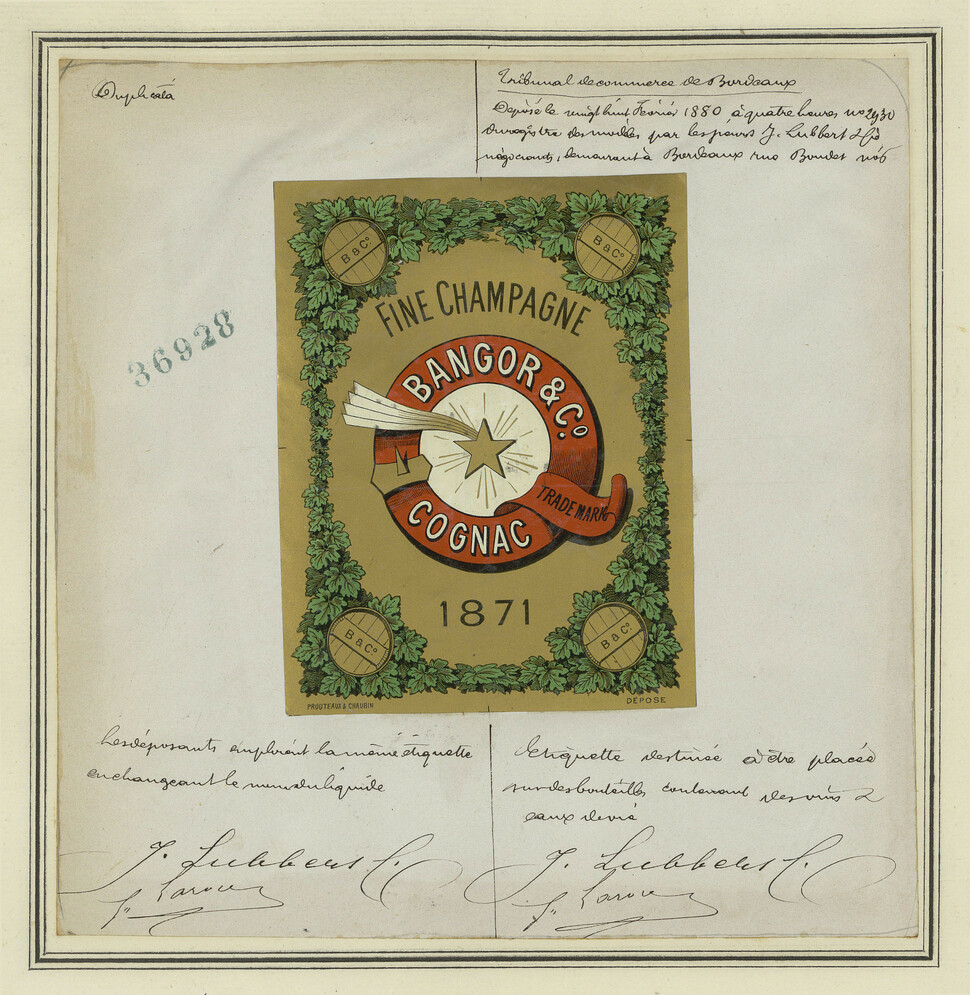 Duplicata
Tribunal de commerce de Bordeaux
Déposé le vingt huit Février 1880 à quatre heures no 2930
du registre des modèles par les sieurs J. Lubbert & Co
négociants, demeurant à Bordeaux rue Boudet no 6
36928
B & Co
B & Co
FINE CHAMPAGNE
BANGOR & Co.
TRADE MARK
COGNAC
1871
B & Co
B & Co
PROUTEAUX & CHAUBIN
DÉPOSÉ
Les déposants emploient la même étiquette
en changeant le nom du liquide
Etiquette destinée à être placée
sur des bouteilles contenant des vins &
eaux de vie
J. Lubbert
J. Lubbert